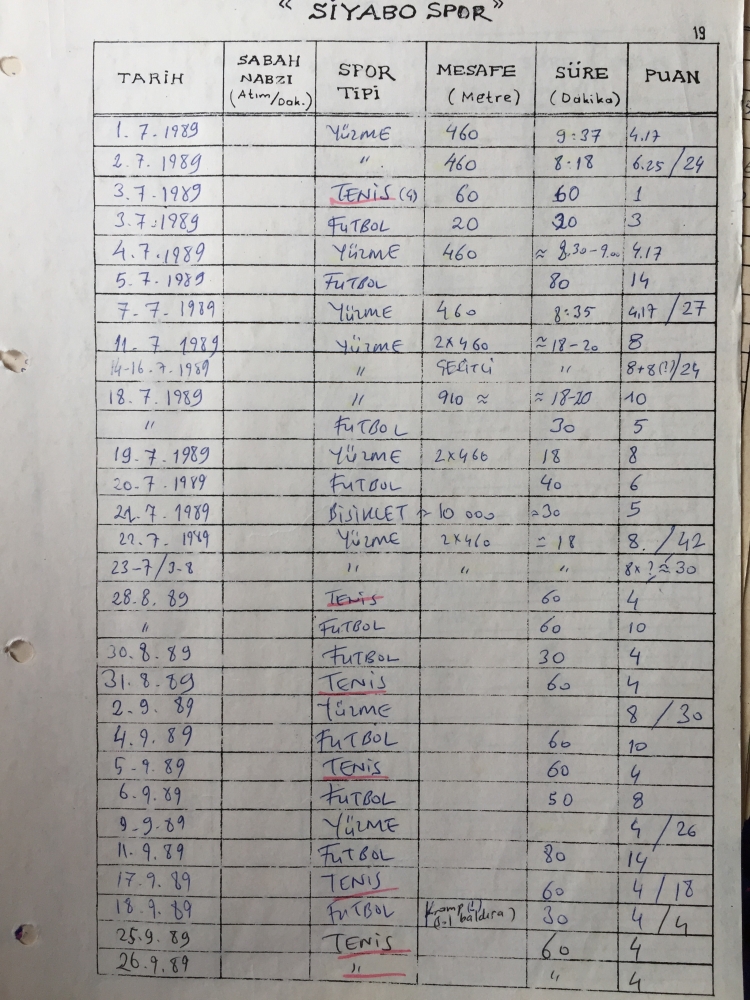 “ SİYABO SPOR”
19
TARİH SABAH NABZI (Atım/Dak.) SPOR TİPİ MESAFE (Metre) SÜRE (Dakika) PUAN
1.7.1989 YÜZME 460 9:37 4.17
2.7.1989 " 460 8:18 6.25/24
3.7.1989 TENİS (4) 60 60 1
3.7.1989 FUTBOL 20 20 3
4.7.1989 YÜZME 460 ≈ 8.30-9.00 4.17
5.7.1989 FUTBOL 80 14
7.7.1989 YÜZME 460 8:35 4.17/27
11.7.1989 YÜZME 2x460 ≈18-20 8
14-16.7.1989 " " 8+8(?)/24
18.7.1989 " 910 ≈ ≈18-20 10
" FUTBOL 30 5
19.7.1989 YÜZME 2x460 18 8
20.7.1989 FUTBOL 40 6
21.7.1989 BİSİKLET ~ 10 000 ≈30 5
22.7.1989 YÜZME 2x460 ≈ 18 8. /42
23-7/3-8 " " " 8x?≈30
28.8.89 TENİS 60 4
" FUTBOL 60 10
30.8.89 FUTBOL 30 4
31.8.89 TENİS 60 4
2.9.89 YÜZME 8 /30
4.9.89 FUTBOL 60 10
5.9.89 TENİS 60 4
6.9.89 FUTBOL 50 8
9.9.89 YÜZME 4 /26
11.9.89 FUTBOL 80 14
17.9.89 TENİS 60 4 /18
18.9.89 FUTBOL baldıra) 30 4 /4
25.9.89 TENİS 60 4
26.9.89 " " 4